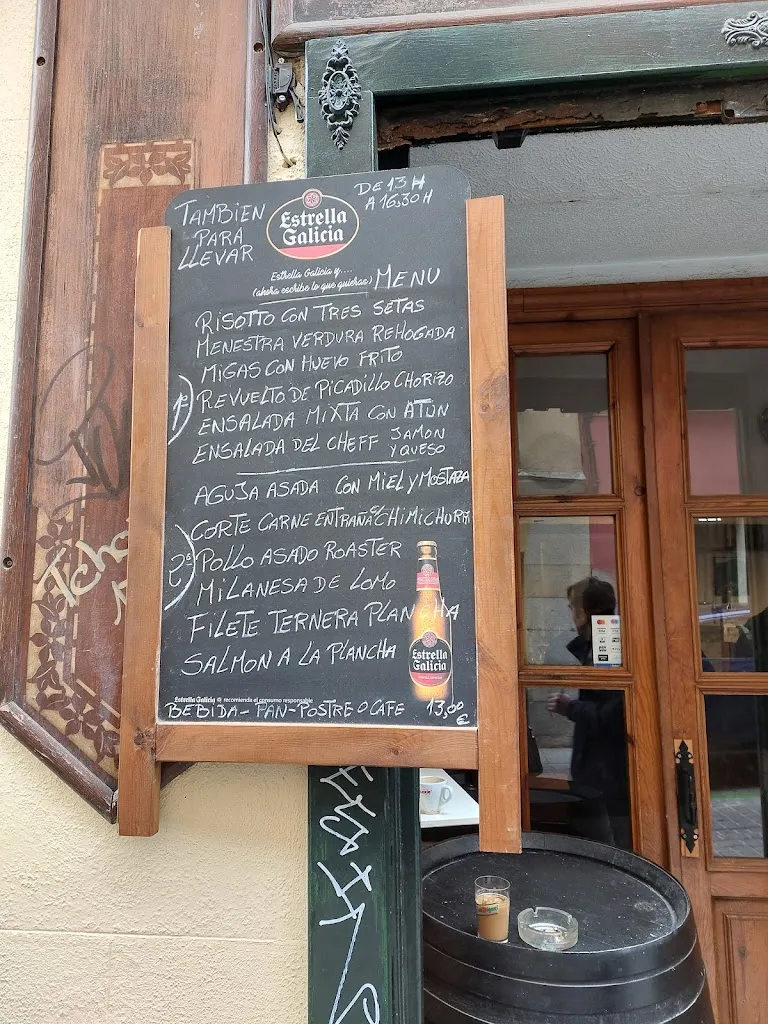 TAMBIEN
PARA
LLEVAR
Estrella
Galicia
DE 13 H
A 16,30 H
Estrella Galicia y....
(ahora escribe lo que quieras)
MENU
RISOTTO CON TRES SETAS
MENESTRA VERDURA REHOGADA
MIGAS CON HUEVO FRITO
1º
REVUELTO DE PICADILLO CHORIZO
ENSALADA MIXTA CON ATUN
ENSALADA DEL CHEFF JAMON
Y QUESO
AGUJA ASADA CON MIEL Y MOSTAZA
CORTE CARNE ENTRAÑA C/CHIMICHURRI
2º
POLLO ASADO ROASTER
MILANESA DE LOMO
FILETE TERNERA PLANCHA
SALMON A LA PLANCHA
Estrella
Galicia
Estrella Galicia recomienda el consumo responsable
BEBIDA - PAN - POSTRE O CAFE 13,00 €